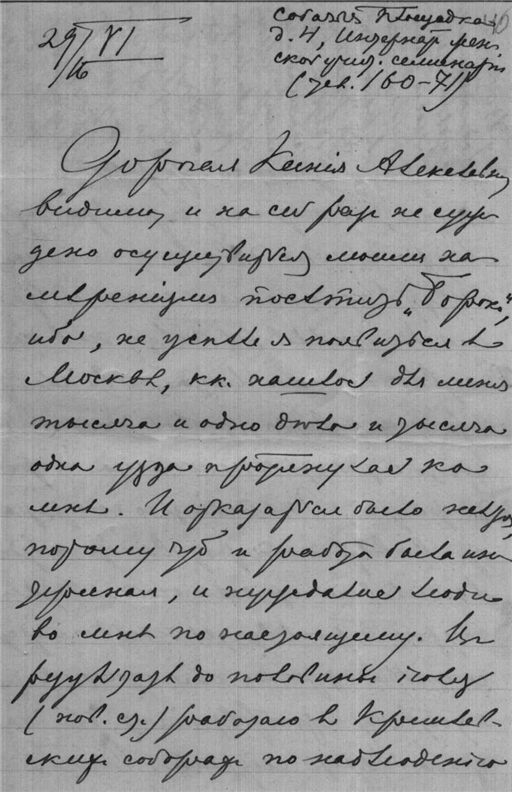 29/VI
16
Собачья площадка
д. 4, Интернат жен
ской учит. семинаріи
(тел. 160-71)
Дорогая Ксенія Алексѣевна,
видимо, и на сей раз не суж
дено осуществиться моим на
мѣреніям посѣтить „Борок",
ибо, не успѣл я появиться в
Москвѣ, кк. нашлось для меня
тысяча и одно дѣло и тысяча
одна рука протянулась ко
мнѣ. И отказаться было нельзя,
потому что и работа была ин
тересная, и нуждались люди
во мнѣ по настоящему. В
результатѣ до половины іюля
(нов. ст.) работаю в Кремлев-
ских соборах по наблюденію